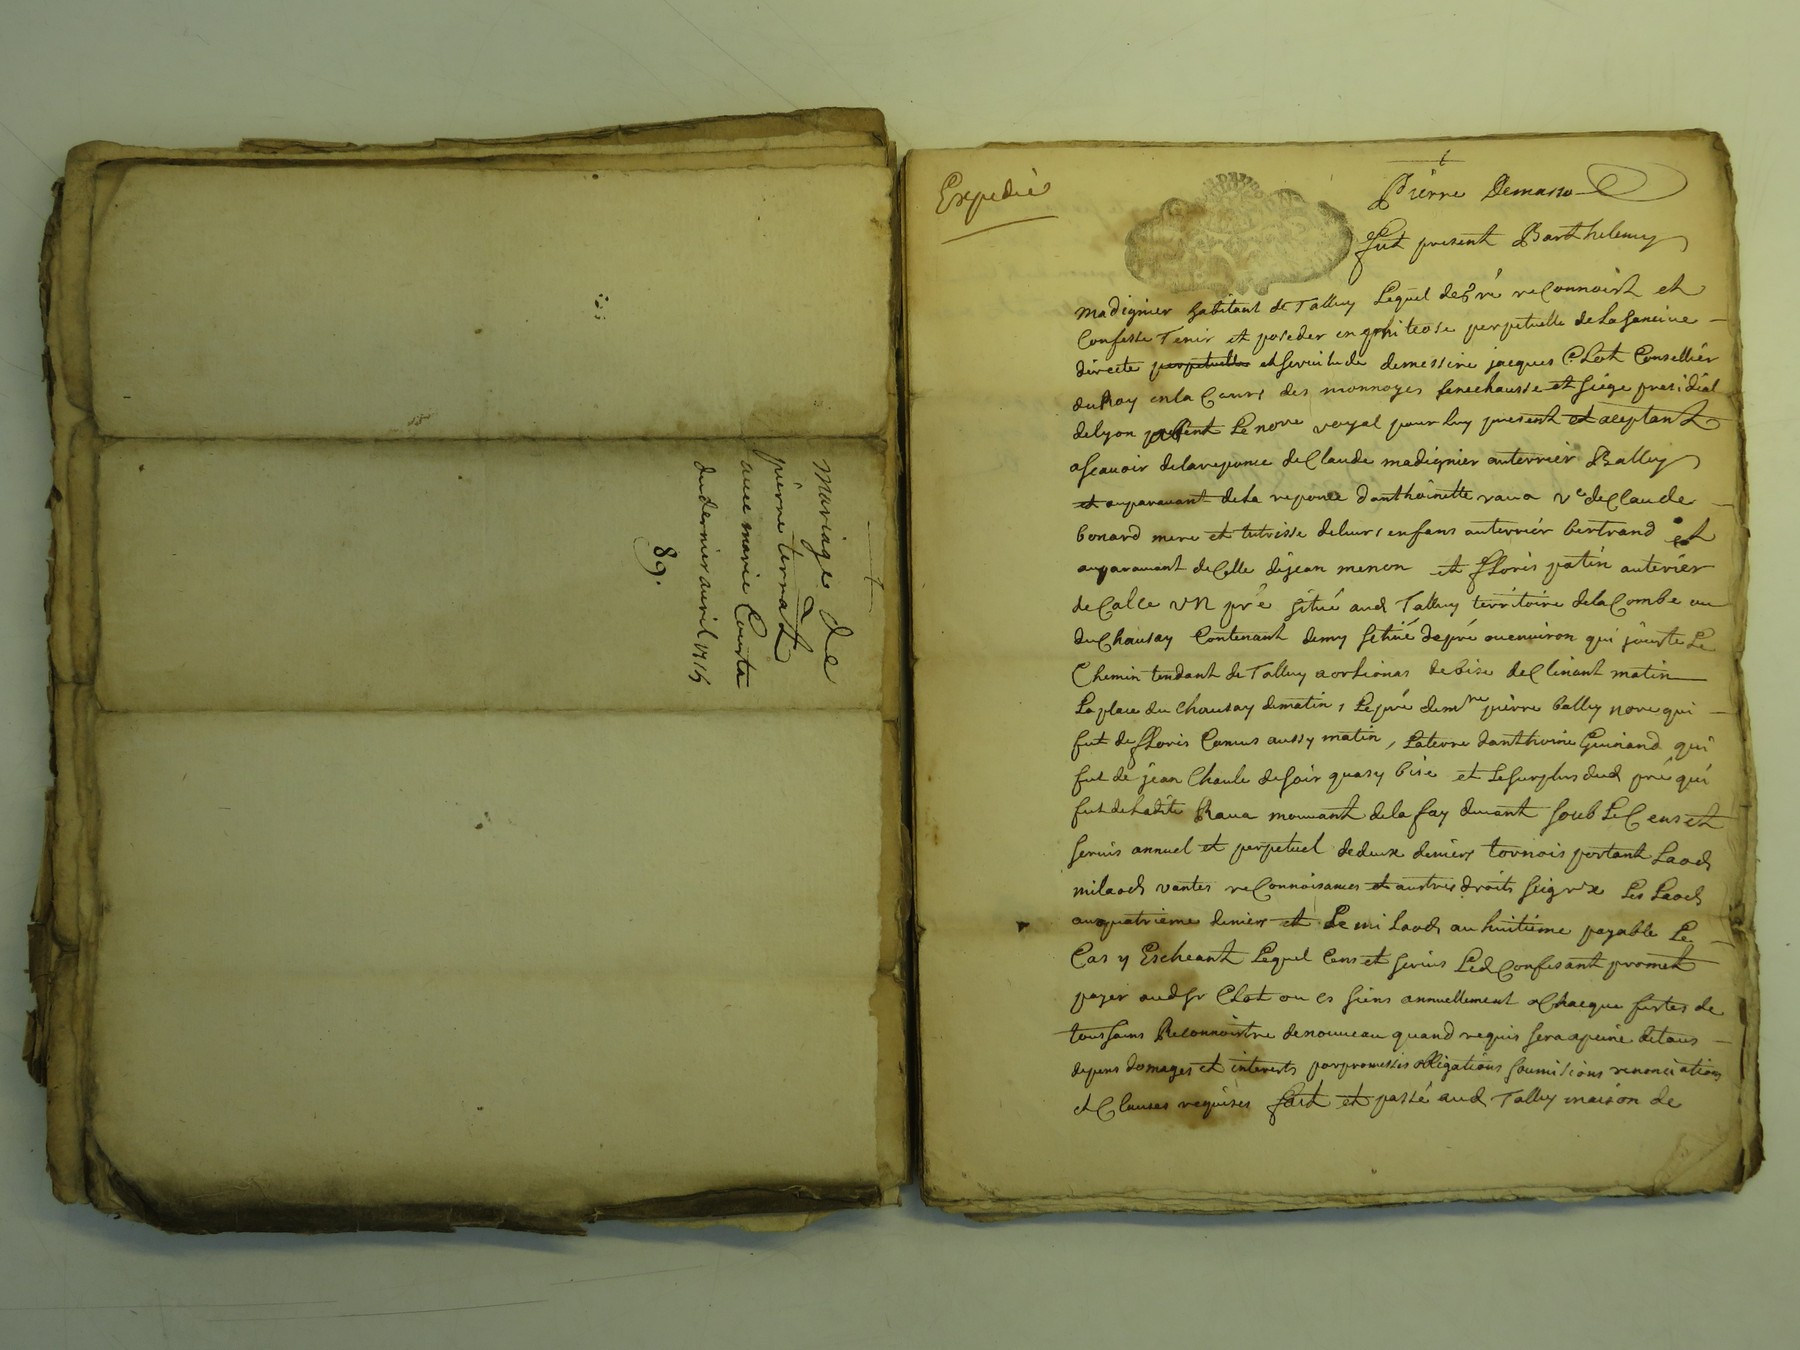 Mariage de
pierre ternat
avec marie Courta
du dernier avril 1715
89.
Expedié
Pierre Demasso
fut present Barthelemy
madignier habitant de Talluy Lequel de gré reConnoist et
Confesse Tenir et posceder en ephiteose perpetuelle de la
directe perpetuelle et servitude de messire jacques Clot Conseillér
du Roy en la Cours des monnoyes senechausse et siége presidial
de lyon absent Le nore royal pour luy present et aceptant
ascavoir de la reponce de Claude madignier au terrier Balluy
et auparavant de la reponce d'anthoinette rava ve de Claude
bonard mere et tutrisse de leurs enfans au terriér bertrand et
auparavant de Celle de jean menon et floris patin au teriér
de Calce un pré situé aud Talluy territoire de la Combe ou
du Chausay Contenant demy de pré ou environ qui jouxte Le
Chemin tendant de Talluy a orlienas de bise declinant matin
La place du Chausay de matin, Le pré de mtre pierre balluy nore qui
fut de floris Camus aussy matin, La terre d'anthoine Guinand qui
fut de jean Chaule de soir quasy bise et Le surplus dud pré qui
fut de ladite Rava mouvant de la fay durant soub Le Cens et
servis annuel et perpetuel de deux deniers tornois portant Laods
milaods vantes reConnoisances et austres droits seigrx Les Laods
au quatrieme deniers et Le mi Laods au huitiéme payable Le
Cas y Escheant Lequel Cens et servis Led Confesant promet
payer aud sr Clot ou es siens annuellement a Chacque festes de
toussains Reconnoistre de nouveau quand requis sera a peine de tous
depens domages et interests par promesses obligations soumisions renonciations
et Clauses requises fait et passé aud Talluy maison de